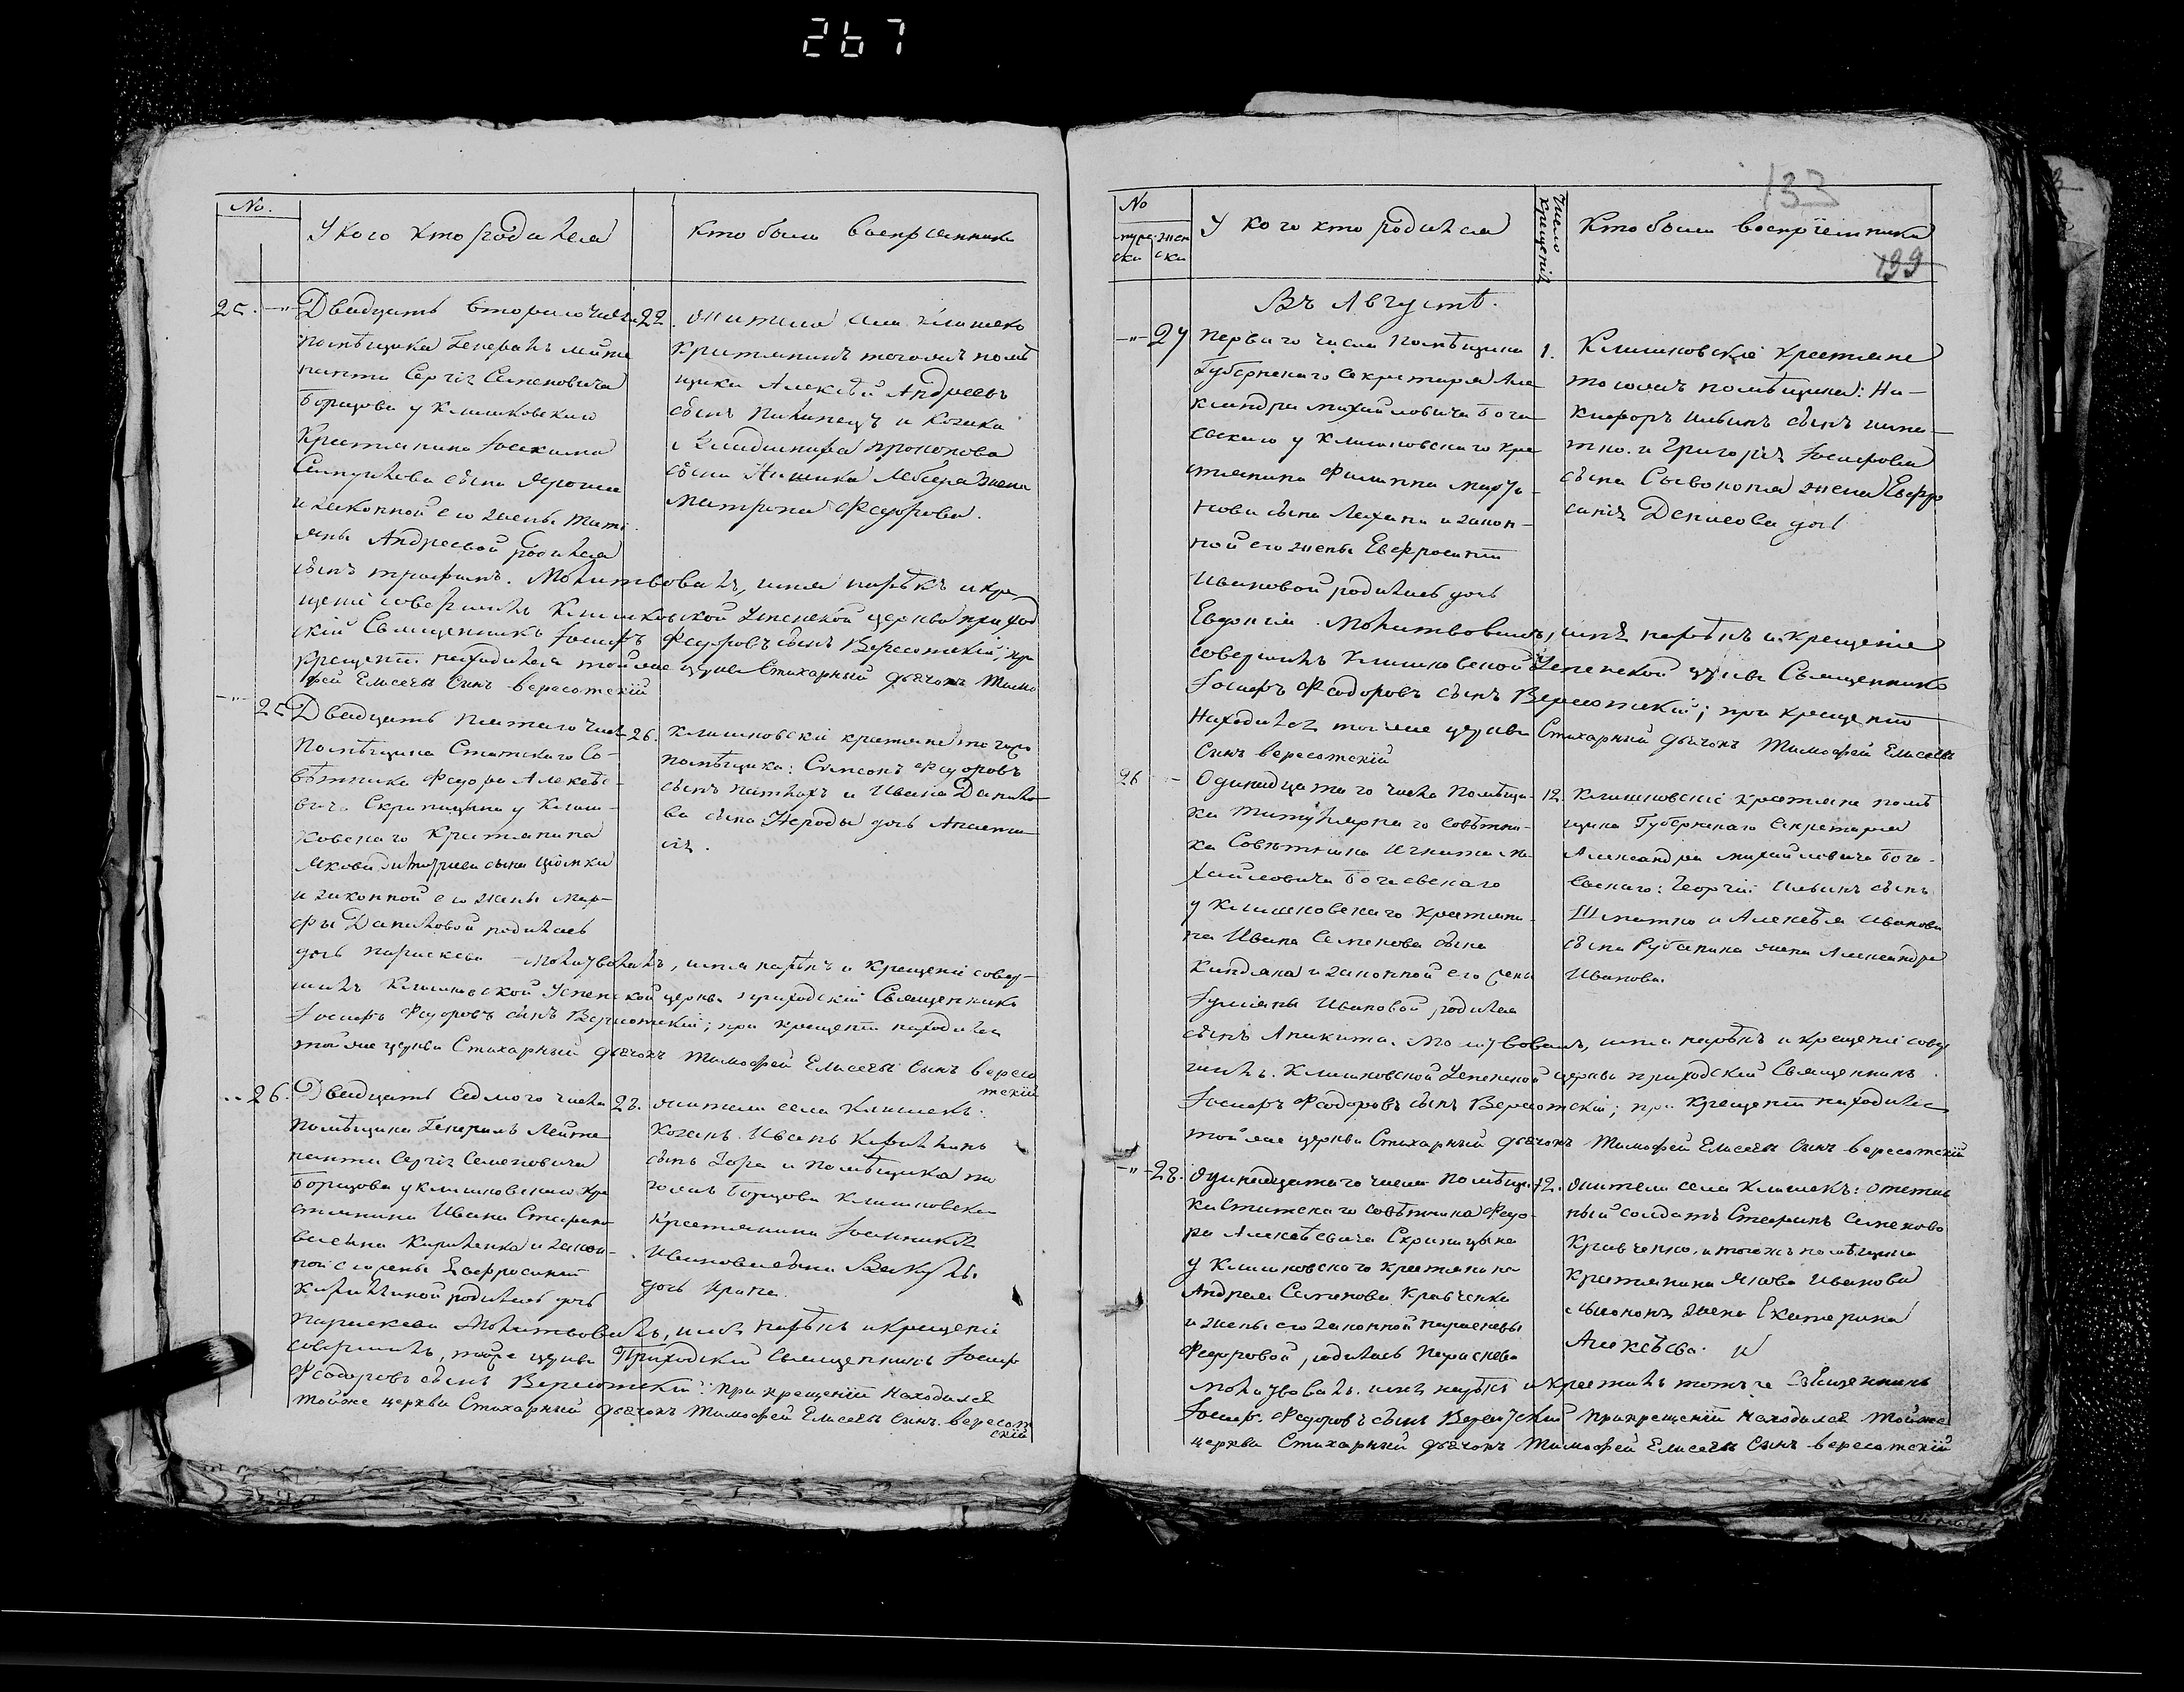 267
No.
У кого кто родился
Кто были восприемники
25. -"- Двадцать второго числа 22.
помѣщика Генералъ лейте
нанта Сергія Семеновича
Борщова у Клишковскаго
Крестьянина Іоакима
сына
и законной его жены Тати
яны Андреевой родился
сынъ Трофимъ. Молитвовалъ, имя нарѣкъ и кре
щеніе совершилъ Клишковской Успенской церкви приход
скій Священникъ Іосифъ Федоровъ сынъ Вересотскій, при
крещеніи находился тойже церкви Стихарный дьячокъ Тимо
фей Елисеевъ Сынъ Вересотскій
жители села Клишекъ
Крестьянинъ тогожъ помѣ
щика Алексѣй Андреевъ
сынъ Пилипецъ и Козака
Владимира Прокопова
сына жена
Матрона Федорова.
-"- 25 Двадцать пятаго числа 26.
Помѣщика Статскаго Со-
вѣтника Федора Алексѣе-
вича Скрипицына у Клиш-
ковскаго Крестьянина
Якова Димитріева сына
и законной его жены Мар-
фы Даниловой родилась
дочь Параскева Молитвовалъ, имя нарѣкъ и Крещеніе совер-
шилъ Клишковской Успенской церкви приходскій Священникъ
Іосифъ Федоровъ сынъ Вересотскій; при крещеніи находился
тойже церкви Стихарный дьячокъ Тимофей Елисеевъ Сынъ Вересо
тскій
Клишковскіе крестьяне тогожъ
помѣщика: Симеонъ Федоровъ
сынъ и Ивана Данило
ва сына Нероды дочь Анаста
сія.
26. Двадцать седмого числа 28.
помѣщика Генералъ Лейте
нанта Сергія Семеновича
Борщова у Клишковскаго Кре
стьянина Ивана Стефано
ва сына Кириленка и закон-
ной его жены Евфросиніи
Кирилиной родилась дочь
Параскева Молитвовалъ, имя нарѣкъ и крещеніе
совершилъ, тойже церкви Приходскій Священникъ Іосиф
Федоровъ сынъ Вересотскій: при крещеніи находился
тойже церкви Стихарный дьячокъ Тимофей Елисеевъ Сынъ Вересот
скій
жители села Клишекъ.
Козакъ Иванъ Кирилинъ
сынъ Зора и помѣщика то
гожъ Борщова Клишковска
Крестьянина Іоанникія
Иванова сына
дочь Ирина.
133
199
No
муже- жен
ски ски
У кого кто родился
Число крещенія
Кто были воспріемники
Въ Августѣ.
-"- 27 Перваго числа помѣщика 1.
Губернскаго Секретаря Але
ксандра Михайловича Бога-
евскаго у Клишковскаго кре
стьянина Филиппа Марты-
нова сына и закон-
ной его жены Евфросиніи
Ивановой родилась дочь
Евдокія. Молитвовалъ, имя нарѣкъ и крещеніе
совершилъ Клишковской Успенской церкви Священникъ
Іосифъ Федоровъ сынъ Вересотскій; при крещеніи
Находился тойже церкви Стихарный дьячокъ Тимофей Елисеевъ
Сынъ Вересотскій
Клишковскіе крестьяне
тогожъ помѣщика: Ни-
кифоръ Ильинъ сынъ Шпа-
тко. и Григорія Іосифова
сына Сывокопа жена Евфро
синія Денисова дочь
26 - Одинадцатаго числа Помѣщи- 12.
ка Титулярнаго Совѣтни-
ка Совѣтника Игнатія Ми-
хайловича Богаевскаго
у Клишковскаго Крестьяни-
на Ивана Семенова сына
Киндяка и законной его жены
Іуліаны Ивановой, родился
сынъ Аникита. Молитвовалъ, имя нарѣкъ и крещеніе совер
шилъ. Клишковской Успенской церкви приходскій Священникъ
Іосифъ Федоровъ сынъ Вересотскій; при Крещеніи находился
тойже церкви Стихарный дьячокъ Тимофей Елисеевъ Сынъ Вересотскій
Клишковскіе крестьяне помѣ
щика Губернскаго Секретаря
Александра Михайловича Бога-
евскаго: Георгій Ильинъ сынъ
Шпатко и Алексѣя Иванова
сына Рубаника жена Александра
Иванова.
-"- 28. Одинадцатаго числа Помѣщи- 12.
ка Статскаго Совѣтника Федо-
ра Алексѣевича Скрипицына
у Клишковскаго крестьянина
Андрея Семенова Кравченка
и жены его законной Параскевы
Федоровой, родилась Параскева
Молитвовалъ. имя нарѣкъ и Крестилъ тотъже Священникъ
Іосифъ Федоровъ сынъ Вересотскій при крещеніи находился тойже
церкви Стихарный дьячокъ Тимофей Елисеевъ Сынъ Вересотскій
жители села Клишекъ: отстав
ный солдатъ Стефанъ Семеновъ
Кравченко, и тогожъ помѣщика
Крестьянина Якова Иванова
жена Екатерина
Алексѣева.